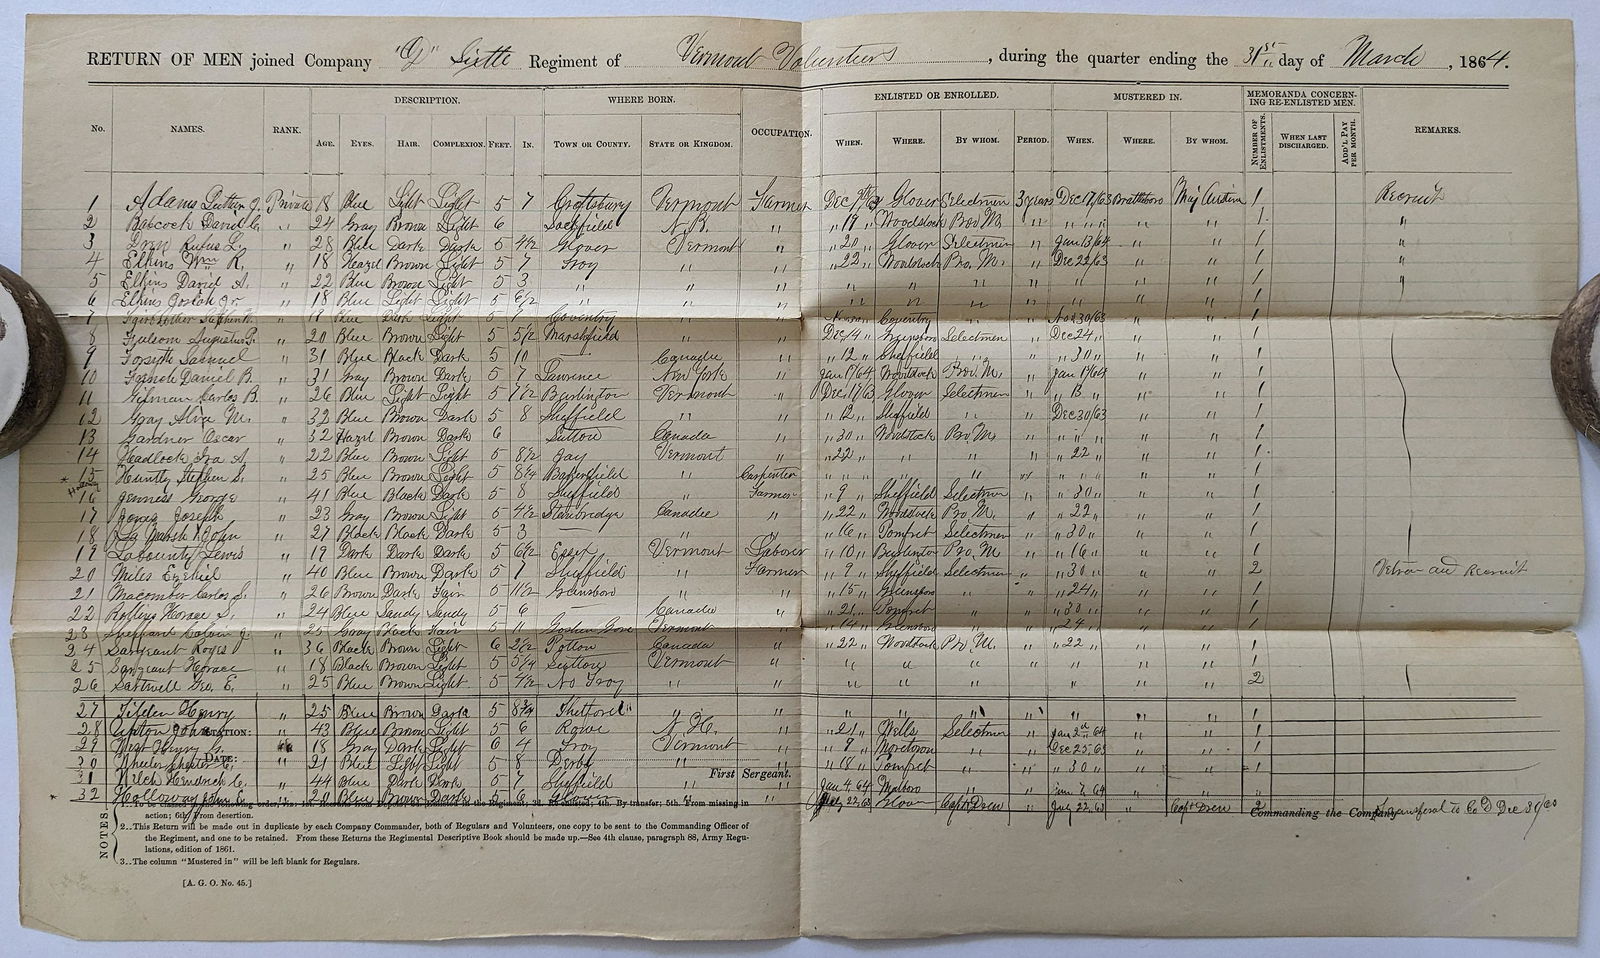 RETURN OF MEN joined Company "D" Sixth Regiment of Vermont Volunteers, during the quarter ending the 31st day of March, 1864.
DESCRIPTION. WHERE BORN. ENLISTED OR ENROLLED. MUSTERED IN. MEMORANDA CONCERNING RE-ENLISTED MEN.
No. NAMES. RANK. AGE. EYES. HAIR. COMPLEXION. FEET. IN. TOWN OR COUNTY. STATE OR KINGDOM. OCCUPATION. WHEN. WHERE. BY WHOM. PERIOD. WHEN. WHERE. BY WHOM. NUMBER OF ENLISTMENTS. WHEN LAST DISCHARGED. ADD'L PAY PER MONTH. REMARKS.
1 Adams Luther J. Private 18 Blue Light Light 5 7 Craftsbury Vermont Farmer Dec Glover Selectmen 3 years Dec 17/63 Brattleboro Maj Austin 1 Recruit
2 Babcock David C. " 24 Gray Brown Light 6 Sackfield N.B. " " 19 Woodstock Pro. M. " " " " " " 1 "
3 Drew Rufus L. " 28 Blue Dark Dark 5 4½ Glover Vermont " " 20 " Glover Selectmen " Jan 13/64 " " 1 "
4 Elkins Wm R. " 18 Hazel Brown Light 5 7 Troy " " " 22 " Woodstock Pro. M. " Dec 22/63 " " 1 "
5 Elkins David A. " 22 Blue Brown Light 5 3 " " " " " " " " " " 1 "
6 Elkins Josiah Jr. " 18 Blue Light Light 5 6½ " " " " " " " " " " 1
7 Fairbrother Stephen " 19 Blue Dark Light 5 7 Coventry " " Coventry " Nov 30/63 " " 1
8 Folsom Augustus P. " 20 Blue Brown Light 5 5½ Marshfield " " Dec 14 " Greensboro Selectmen " Dec 24 " " " 1
9 Forsyth Samuel " 31 Blue Black Dark 5 10 — Canada " " 12 " Sheffield " " " 30 " " " 1
10 French Daniel B. " 31 Gray Brown Dark 5 7 Lawrence New York " Jan Woodstock Pro. M. " Jan " " 1
11 Gilman Carlos B. " 26 Blue Light Light 5 7½ Burlington Vermont " Dec. 17/63 Glover Selectmen " " 13 " " " 1
12 Gray Alva M. " 32 Blue Brown Dark 5 8 Sheffield " " " 12 " Sheffield " " Dec 30/63 " " 1
13 Gardner Oscar " 32 Hazel Brown Dark 6 Sutton Canada " " 30 " Woodstock Pro. M. " " " " " " 1
14 Hadlock Ira A. " 22 Blue Brown Light 5 8½ Jay Vermont " " 22 " " " " " 22 " " " 1
* 15 Huntly Stephen S. " 25 Blue Brown Light 5 8¼ Bakersfield " Carpenter " " " " " " " " " " 1
16 Jenness George " 41 Blue Black Dark 5 8 Sheffield " Farmer " 9 " Sheffield Selectmen " " 30 " " " 1
17 Jones Joseph " 23 Gray Brown Light 5 4½ Stanbridge Canada " " 22 " Woodstock Pro. M. " " 22 " " " 1
18 La Marsh John " 27 Black Black Dark 5 3 — " " " 16 " Pomfret Selectmen " " 30 " " " 1
19 Labounty Lewis " 19 Dark Dark Dark 5 6½ Essex Vermont Laborer " 10 " Burlington Pro. M. " " 16 " " " 1
20 Miles Ezekiel " 40 Blue Brown Dark 5 7 Sheffield " Farmer " 9 " Sheffield Selectmen " " 30 " " " 2 Vetran and Recruit
21 Macomber Carlos S. " 26 Brown Dark Fair 5 11½ Greensboro " " " 15 " Greensboro " " " 24 " " " 1
22 Horace S. " 24 Blue Sandy Sandy 5 6 — Canada " " 21 " Pomfret " " " 30 " " " 1
23 Sheppard " 25 Gray Black Fair 5 11 Goshen Gore Vermont " " 14 " Greensboro " " " 24 " " " 1
24 Sargeant Roger " 36 Black Brown Light 6 2½ Potton Canada " " 22 " Woodstock Pro. M. " " 22 " " " 1
25 Sargeant Horace " 18 Black Brown Light 5 5¼ Sutton Vermont " " " " " " " " 1
26 Sartwell Geo. E. " 25 Blue Brown Light 5 4½ No Troy " " " " " " " " " 2
27 Tilden Henry " 25 Blue Brown Dark 5 8¾ Thetford " " " " " " " " " 1
28 Upton John " 43 Blue Brown Light 5 6 Rowe N.H. " " 21 " Wells Selectmen " Jan 2d 64 " " 1
STATION:
29 West Henry " 18 Gray Dark Light 6 4 Troy Vermont " " 9 " Moretown " " Dec 25, 63 " " 1
30 Wheeler Chester C. " 21 Blue Light Light 5 8 Derby " " " 18 " Pomfret " " " 30 " " " 1
DATE:
31 Welch Hendrick C. " 44 Blue Dark Dark 5 7 Sheffield " " Jan 4, 64 " " Jan 7 64 " " 1
First Sergeant.
* 32 Holloway John E. " 20 Blue Brown Dark 5 6 Glover " " July 22, 63 Glover Capt Drew " July 22, 63 " Capt Drew 2 Transferd to Co D Dec
Commanding the Company.
NOTES.
1..To be classed in the following order, 3d. 4th. By transfer; 5th. From missing in
action; 6th. From desertion.
2..This Return will be made out in duplicate by each Company Commander, both of Regulars and Volunteers, one copy to be sent to the Commanding Officer of
the Regiment, and one to be retained. From these Returns the Regimental Descriptive Book should be made up.—See 4th clause, paragraph 88, Army Regu-
lations, edition of 1861.
3..The column "Mustered in" will be left blank for Regulars.
[A. G. O. No. 45.]